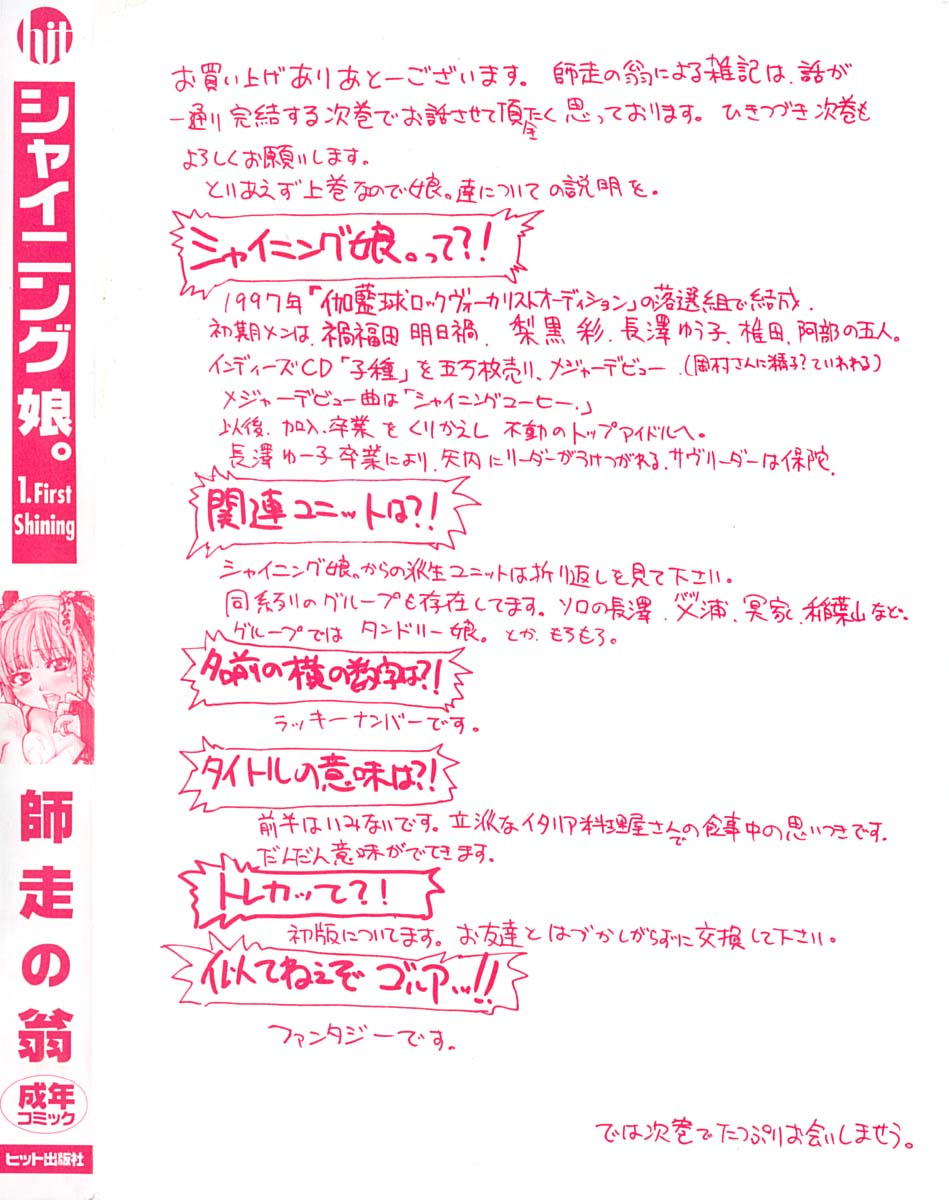 hit
シャイニング娘。
1.First
Shining
師走の翁
成年
コミック
ヒット出版社
お買い上げありあとーございます。 師走の翁による雑記は、話が
一通り完結する次巻でお話させて頂たく思っております。 ひきつづき次巻も
よろしくお願いします。
とりあえず上巻なので娘。達についての説明を。
シャイニング娘。って?!
1997年「伽藍球ロックヴォーカリストオーディション」の落選組で結成.
初期メンは、禍福田 明日禍、 梨黒 彩、長澤ゆう子、椎田、阿部の五人。
インディーズCD「子種」を五万枚売り、メジャーデビュー.(岡村さんに精子?ていわれる)
メジャーデビュー曲は「シャイニングコーヒー.」
以後、加入、卒業をくりかえし 不動のトップアイドルへ。
長澤ゆー子卒業により、矢内にリーダーがうけつがれる、サヴリーダーは保陀.
関連ユニットは?!
シャイニング娘。からの派生ユニットは折り返しを見て下さい。
同系列のグループも存在してます。ソロの長澤、浦、冥家、稲葉山など.
グループでは タンドリー娘。とか、もろもろ。
名前の横の数字は?!
ラッキーナンバーです。
タイトルの意味は?!
前半はいみないです。立派なイタリア料理屋さんでの食事中の思いつきです.
だんだん意味がでてきます.
トレカッて?!
初版についてます。お友達とはづかしがらずに交換して下さい。
似てねぇぞ ゴルアッ!!
ファンタジーです。
では次巻でたっぷりお会いしませう。